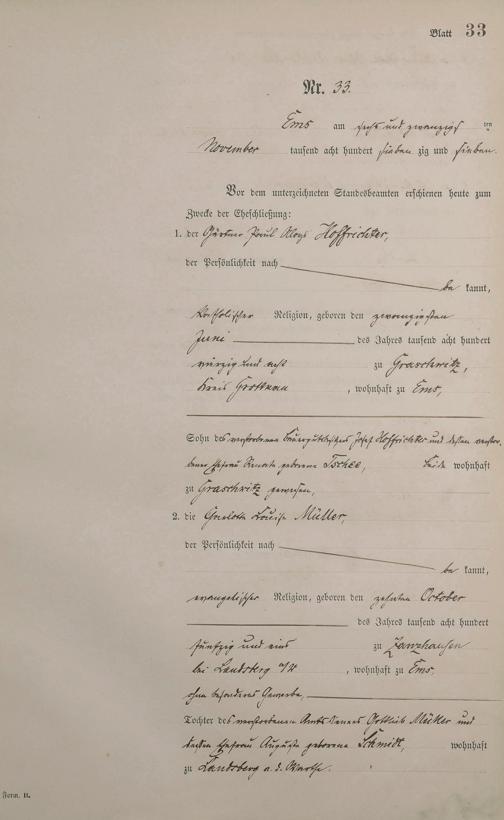 Blatt 33
Nr. 33.
Ems am sechs und zwanzigsten
November tausend acht hundert sieben zig und sieben.
Vor dem unterzeichneten Standesbeamten erschienen heute zum
Zwecke der Eheschließung:
1. der Gärtner Paul Aloys Hoffrichter,
der Persönlichkeit nach
be kannt,
katholischer Religion, geboren den zwanzigsten
Juni des Jahres tausend acht hundert
vierzig und acht zu Graschwitz,
Kreis Grottkau, wohnhaft zu Ems,
Sohn des verstorbenen Bauergutsbesitzers Josef Hoffrichter und dessen verstor-
benen Ehefrau Renate geborene Tschee, beide wohnhaft
zu Graschwitz gewesen,
2. die Louise Müller,
der Persönlichkeit nach
be kannt,
evangelischer Religion, geboren den zehnten October
des Jahres tausend acht hundert
fünfzig und eins zu Zanzhausen
bei Landsberg a/W, wohnhaft zu Ems,
ohne besonderes Gewerbe,
Tochter des verstorbenen Amtsdieners Gottlieb Müller und
dessen Ehefrau Auguste geborene Schmidt, wohnhaft
zu Landsberg a. d. Warthe.
Form. B.